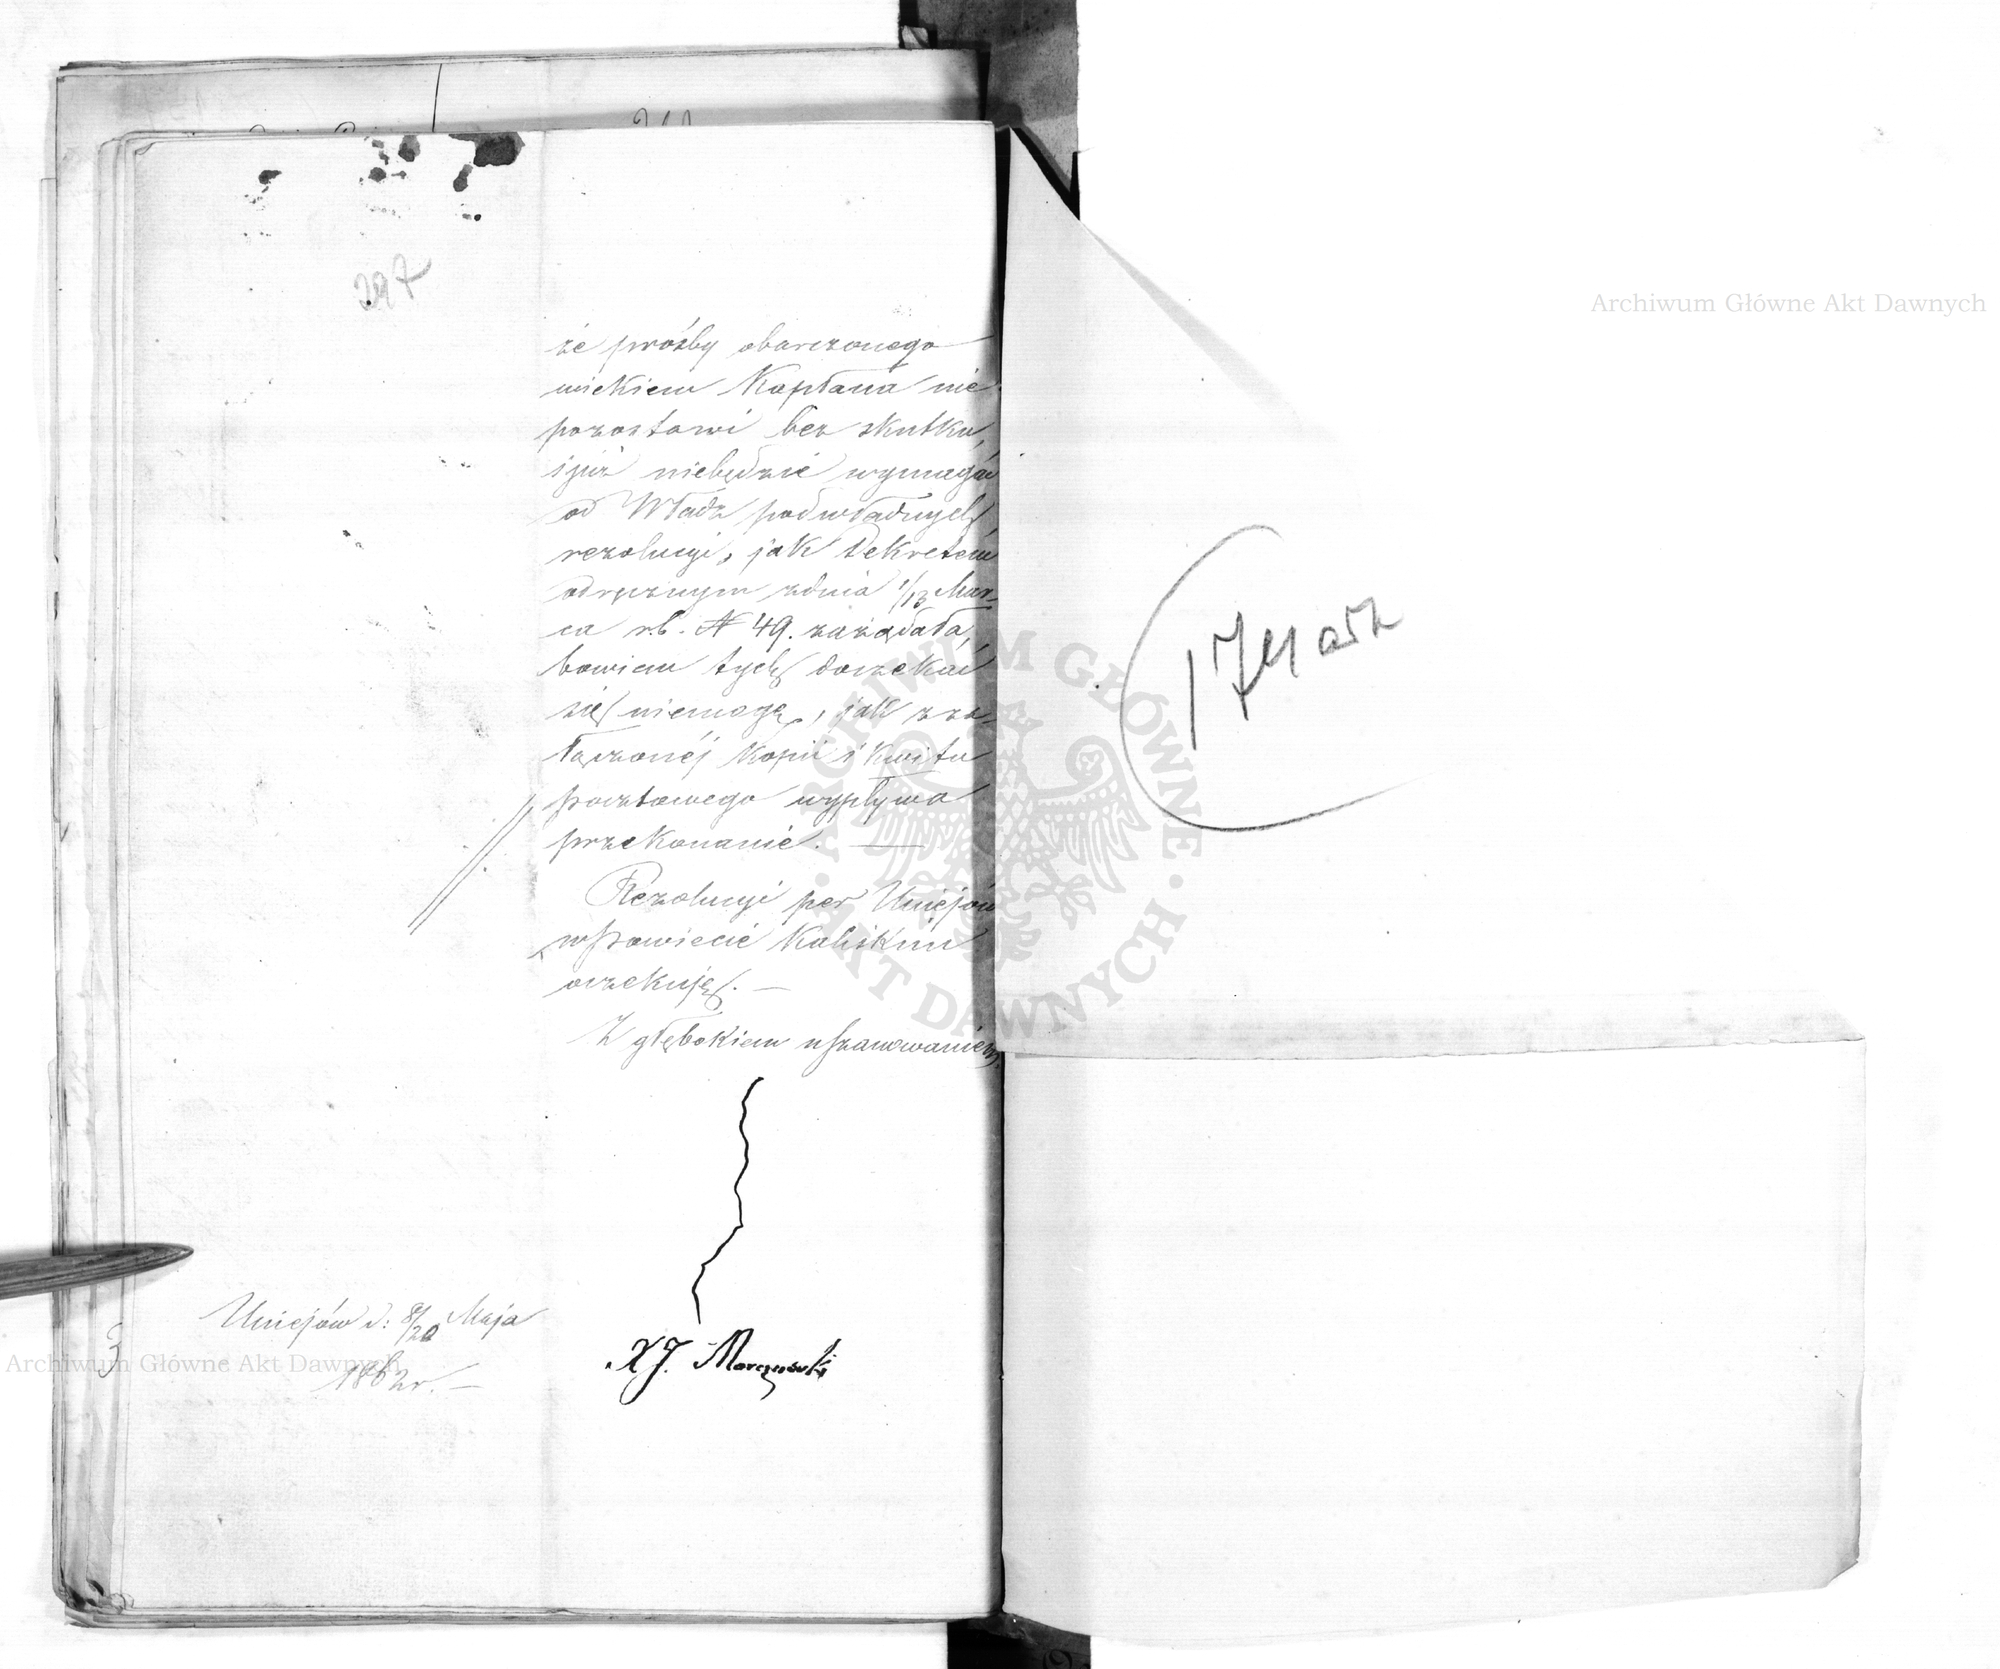 297
że prośby obarczonego
wiekiem Kapłana nie
pozostawi bez skutku,
i już niebędzie wymagać
od Władz podwładnych
rezolucyi, jak Dekretem
odręcznym zdnia 1/13 Mar-
ca r.b. N 49. zażądała,
bowiem tych doczekać
się niemogę, jak zza-
łączonéj Kopii i Kwitu
pocztowego wypływa
przekonanie. —
Rezolucyi per Uniejów
w Powiecie Kaliskim
oczekuję. —
Z głębokiem uszanowaniem
Uniejów d: 8/20 Maja
1862 r. —
X J.
17
Archiwum Główne Akt Dawnych
Archiwum Główne Akt Dawnych
ARCHIWUM GŁÓWNE
AKT DAWNYCH